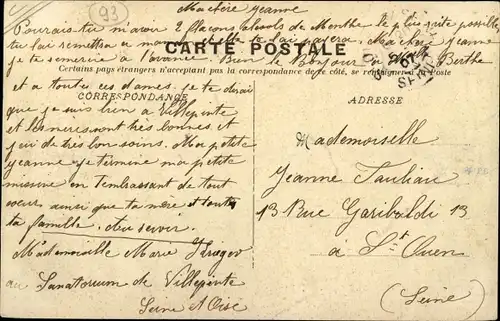 93
Ma chère Jeanne
Pourrais-tu m'avoir 2 flacons alcools de Menthe le plus vite possible
tu lai remettra a maman elle te les payera. Ma chère Jeanne
CARTE POSTALE
je te remercie à l'avance. Bien le bonjour à Berthe
Certains pays étrangers n'acceptant pas la correspondance de ce côté, se renseigner à la Poste
et a toutes ces dames. je te dirai
CORRESPONDANCE
ADRESSE
que je suis bien a Villepinte
et les sont très bonnes. et
j'ai de très bon soins. Ma petite
Jeanne je termine ma petite
missive en t'embrassant de tout
cœur ainsi que ta mère et toute
ta famille. Au revoir.
Mademoiselle Marie Kruger
au Sanatorium de Villepinte
Seine et Oise
Mademoiselle
Jeanne
13 Rue Garibaldi 13
à St Ouen
(Seine)